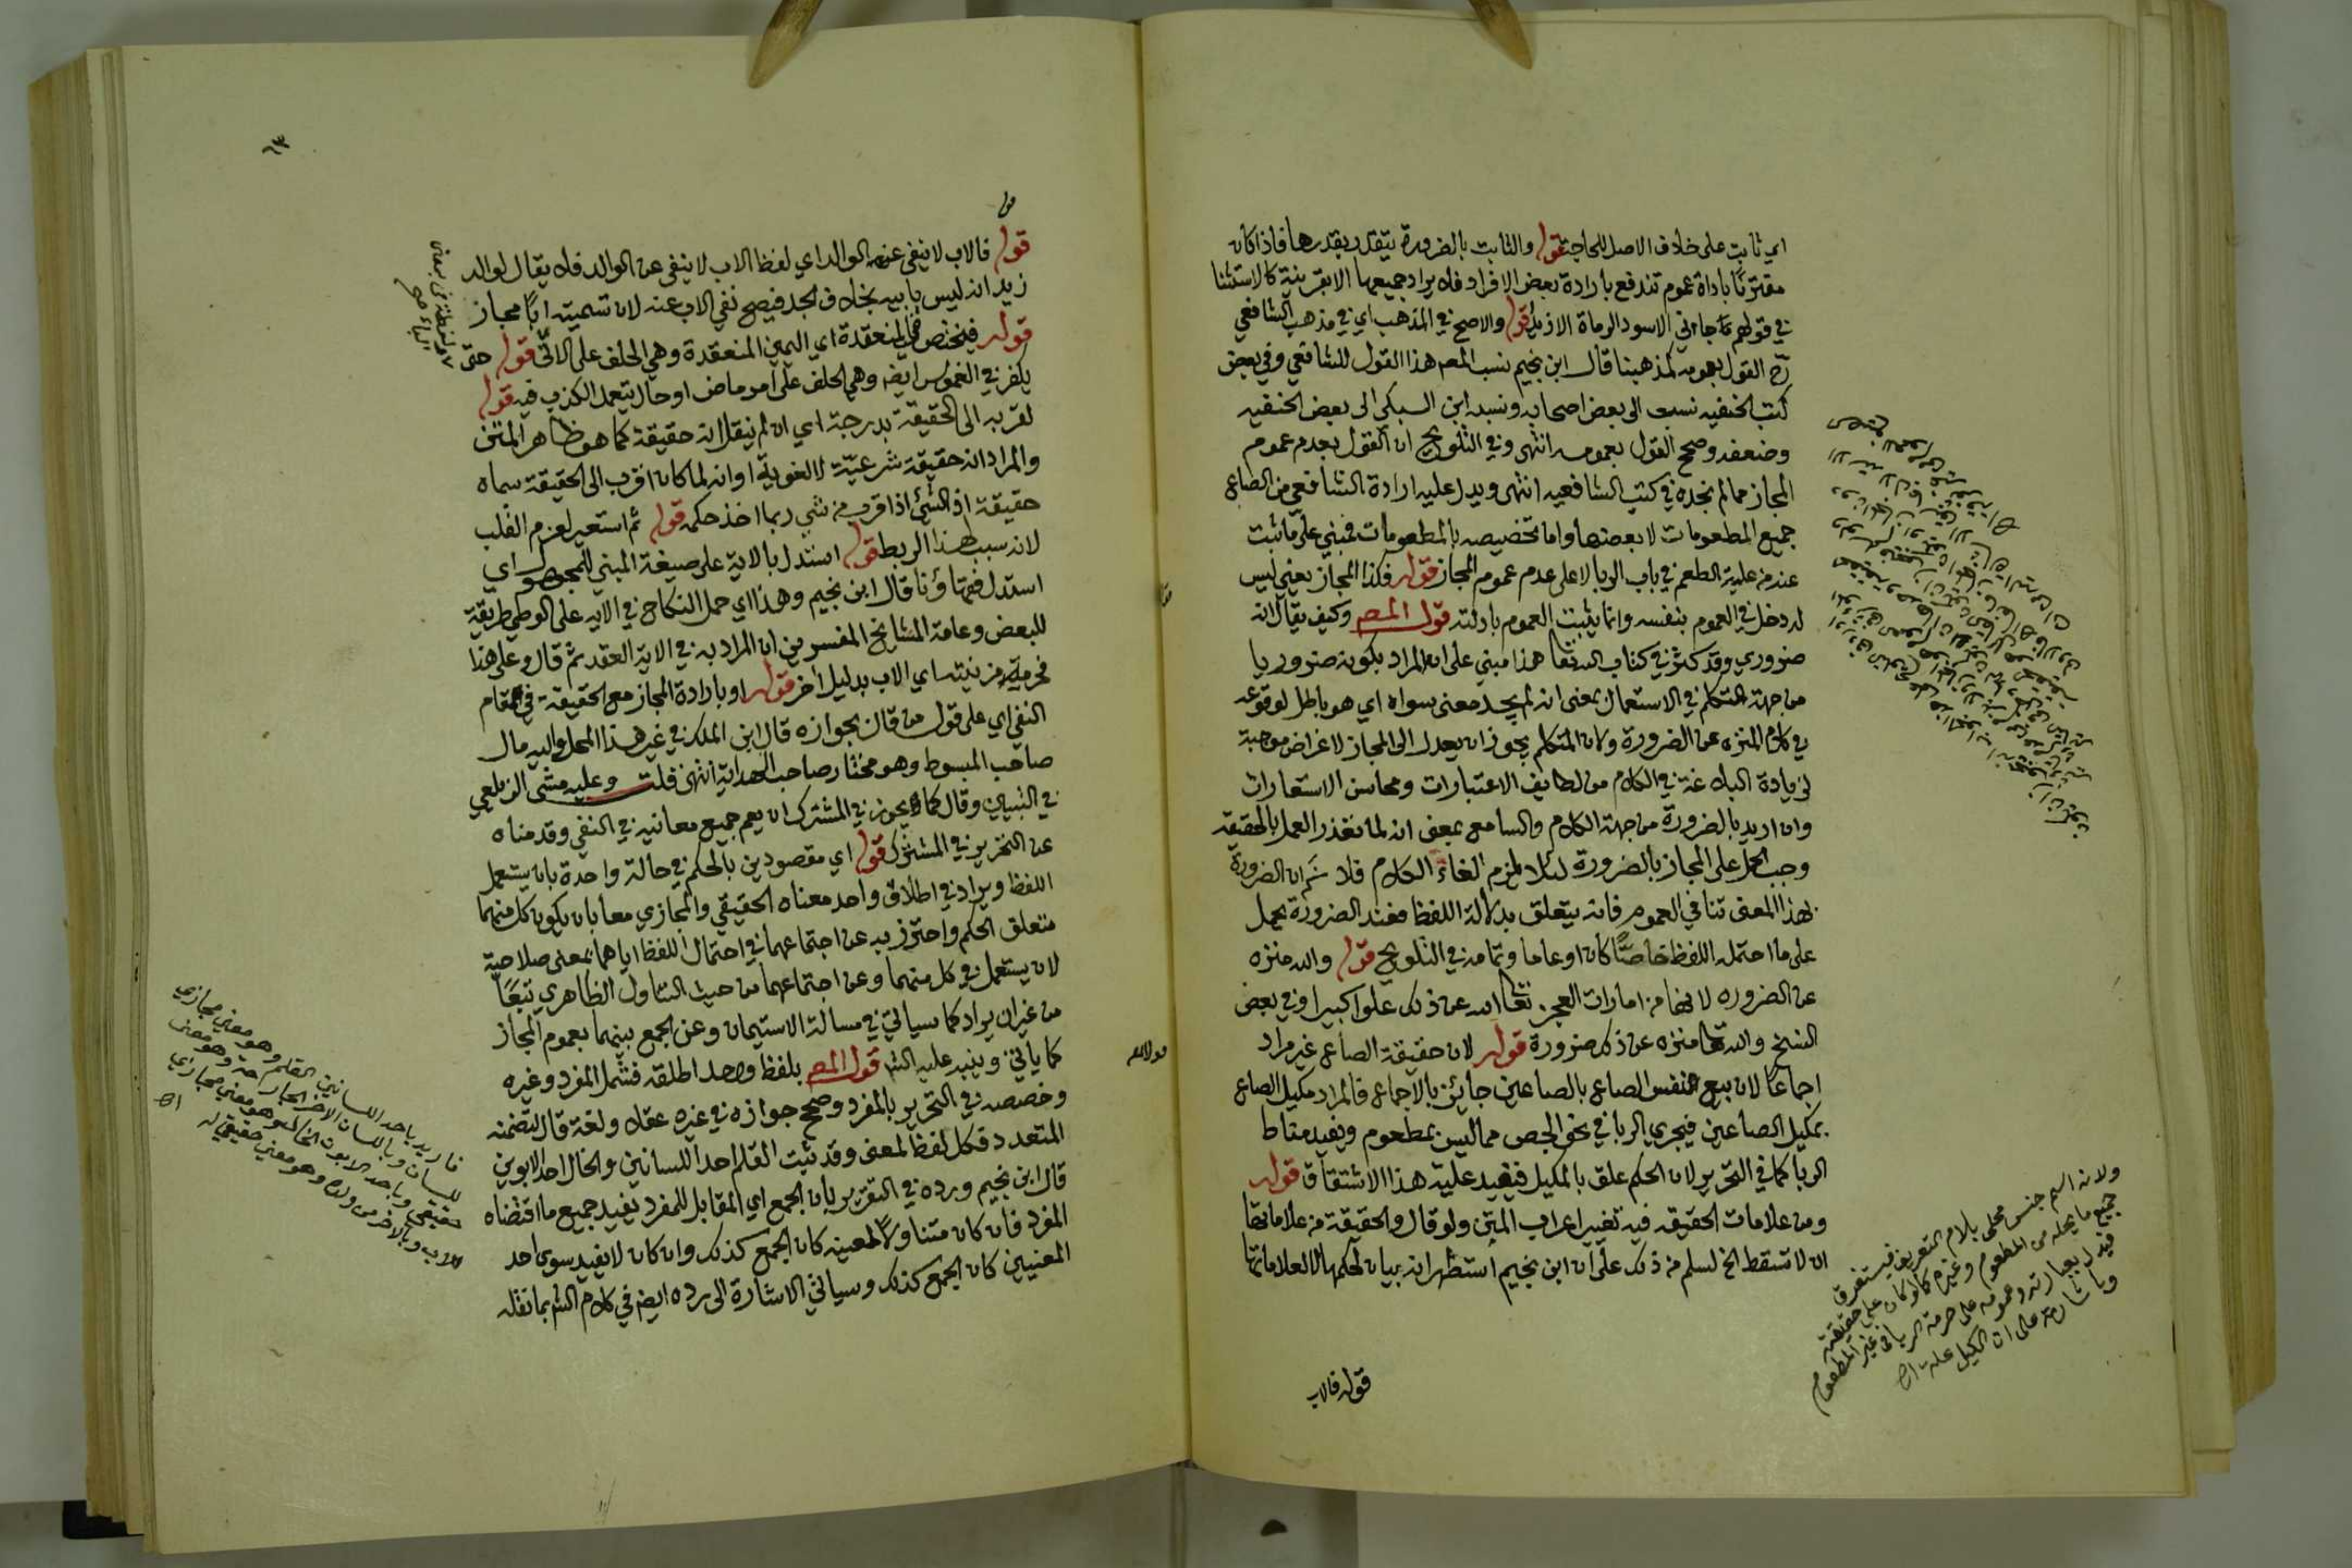 اي ثابت على خلاف الاصل للحاجة قوله والثابت بالضرورة يتقدر بقدرها فاذا كان
مقترنا باداة عموم تندفع بارادة بعض الافراد فلا يراد جميعها الا بقرينة كالاستثنا
في قولهم جاءني الاسود الرماة الا زيد قوله والاصح في المذهب اي في مذهب الشافعي
رح القول بعمومه كمذهبنا قال ابن نجيم نسب المص هذا القول للشافعي وفي بعض
كتب الحنفيه نسب الى بعض اصحابه ونسبه ابن السبكي الى بعض الحنفيه
وضعفه وصحح القول بعمومه انتهى وفي التلويح ان القول بعدم عموم
المجاز مما لم نجده في كتب الشافعيه انتهى ويدل عليه ارادة الشافعي من الصاع
جميع المطعومات لا بعضها واما تخصيصه بالمطعومات فمبني على ما ثبت
عنده من علية الطعم في باب الربا لا على عدم عموم المجاز قوله فكذا المجاز يعني ليس
له دخل في العموم بنفسه وانما يثبت العموم بادلته قول المص وكيف يقال انه
ضروري وقد كثر في كتاب الله تعا هذا مبني على ان المراد بكونه ضروريا
من جهة المتكلم في الاستعمال بمعنى انه لم يجد معنى سواه اي هو باطل لوقوعه
في كلام المنزه عن الضرورة ولان المتكلم يجوز ان يعدل الى المجاز لاغراض موجبة
لزيادة البلاغة في الكلام من لطايف الاعتبارات ومحاسن الاستعارات
وان اريد بالضرورة من جهة الكلام والسامع بمعنى انه لما تعذر العمل بالحقيقه
وجب الحمل على المجاز بالضرورة لئلا يلزم الغاء الكلام فلا نسم ان الضرورة
بهذا المعنى تنافي العموم فانه يتعلق بدلالة اللفظ فعند الضرورة يحمل
على ما احتمله اللفظ خاصا كان او عاما وتمامه في التلويح قوله والله منزه
عن الضروره لانها من امارات العجز تعا الله عن ذلك علوا كبيرا وفي بعض
النسخ والله تعا منزه عن ذلك ضرورة قوله لان حقيقة الصاع غير مراد
اجماعا لان بيع نفس الصاع بالصاعين جايز بالاجماع فالمراد مكيل الصاع
بمكيل الصاعين فيجري الربا في نحو الجص مما ليس بمطعوم ويفيد مناط
الربا كما في التحرير لان الحكم علق بالمكيل فيفيد علية هذا الاشتقاق قوله
ومن علامات الحقيقه فيه تغيير اعراب المتن ولو قال والحقيقة من علاماتها
ان لا تسقط الخ لسلم من ذلك على ان ابن نجيم استظهر انه بيان لحكمها لا لعلاماتها
قوله فالاب
ولانه اسم جنس محلى بلام التعريف فيستغرق
جميع ما يحله من المطعوم وغيره كما لو كان على حقيقته
فيدل بعبارته وعمومه على حرمة الربا في غير المطعوم
وباشارته على ان الكيل علة اه
قوله فالاب لا ينفى عن الوالد اي لفظ الاب لا ينفى عن الوالد فلا يقال لوالد
زيد انه ليس بابيه بخلاف الجد فيصح نفي الاب عنه لان تسميته ابا مجاز
قوله فيختص في المنعقدة اي اليمين المنعقدة وهي الحلف على الاتي قوله حتى
يكفر في الغموس ايضا وهي الحلف على امر ماض او حال يتعمد الكذب فيه قوله
لقربه الى الحقيقة بدرجة اي ان لم ينقل انه حقيقة كما هو ظاهر المتن
والمراد انه حقيقة شرعية لا لغوية او انه لما كان اقرب الى الحقيقة سماه
حقيقة اذ الشئ اذا قرب من شي ربما اخذ حكمه قوله ثم استعير لعزم القلب
لانه سبب لهذا الربط قوله استدل بالاية على صيغة المبني للمجهول اي
استدل فقهاؤنا قال ابن نجيم وهذا اي حمل النكاح في الايه على الوطي طريقة
للبعض وعامة المشايخ المفسرين ان المراد به في الاية العقد ثم قال وعلى هذا
فحرمة مزنيته اي الاب بدليل اخر قوله او بارادة المجاز مع الحقيقة في مقام
النفي اي على قول من قال بجوازه قال ابن الملك في غير هذا المحل واليه مال
صاحب المبسوط وهو مختار صاحب الهداية انتهى قلت وعليه مشى الزيلعي
في التبيين وقال كما يجوز في المشترك ان يعم جميع معانيه في النفي وقدمناه
عن التحرير في المشترك قوله اي مقصودين بالحكم في حالة واحدة بان يستعمل
اللفظ ويراد في اطلاق واحد معناه الحقيقي والمجازي معا بان يكون كل منهما
متعلق الحكم واحترز به عن اجتماعهما في احتمال اللفظ اياهما بمعنى صلاحية
لان يستعمل في كل منهما وعن اجتماعهما من حيث التناول الظاهري تبعا
من غير ان يراد كما سياتي في مسالة الاستيمان وعن الجمع بينهما بعموم المجاز
كما ياتي وينبه عليه الش قول المص بلفظ واحد اطلقه فشمل المفرد وغيره
وخصصه في التحرير بالمفرد وصحح جوازه في غيره عقلا ولغة قال لتضمنه
المتعدد فكل لفظ لمعنى وقد ثبت القلم احد اللسانين والخال احد الابوين
قال ابن نجيم ورده في التقرير بان الجمع اي المقابل للمفرد يفيد جميع ما اقتضاه
المفرد فان كان متناولا لمعنييه كان الجمع كذلك وان كان لا يفيد سوى احد
المعنيين كان الجمع كذلك وسياتي الاشارة الى رده ايضا في كلام الش بما نقله
فاريد باحد اللسانين القلم وهو معنى مجازي
للسان وباللسان الاخر الجارحة وهو معنى
حقيقي وباحد الابوين الخال وهو معنى مجازي
للاب وبالاخر من ولده وهو معنى حقيقي له اه